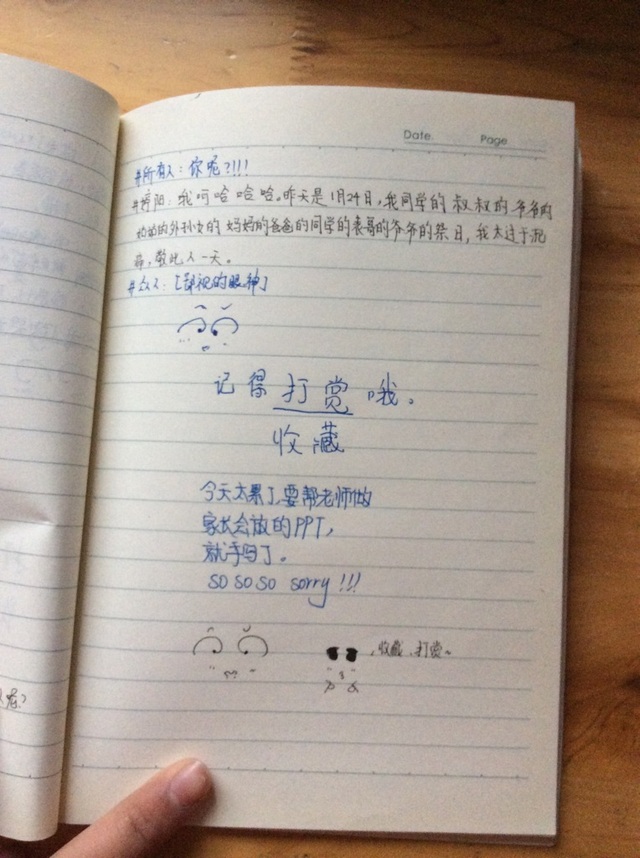 Date. Page
#所有人：你呢?!!!
#婷阳：哦呵哈哈哈。昨天是1月24日,我同学的叔叔的爷爷的
奶奶的外孙女的妈妈的爸爸的同学的表哥的爷爷的祭日,我太过于
，歇此人一天。
#众人：[鄙视的眼神]
记得打赏哦。
收藏
今天太累了,要帮老师做
家长会放的PPT,
就手写了。
so so so sorry!!!
,收藏、打赏。
呢?